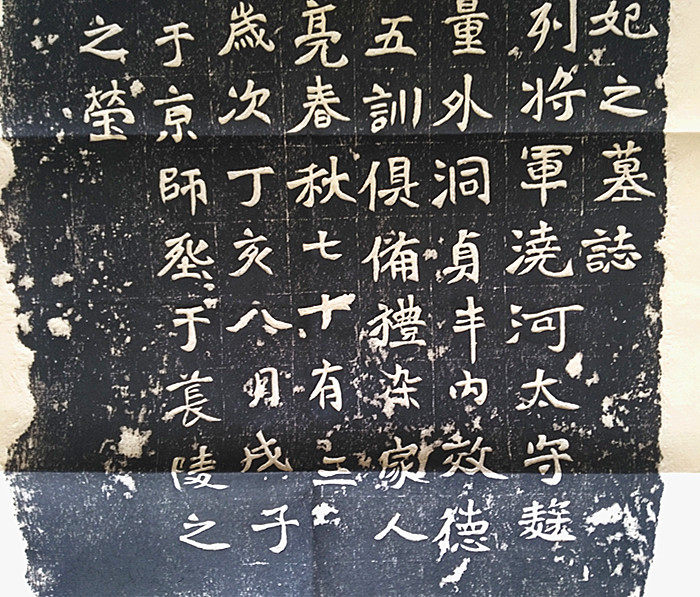 妃之墓誌
列将軍澆河太守麹
量外洞貞丰内效德
五訓俱備禮染家人
亮春秋七十有三
歲次丁亥八月戊子
于京師垄于萇陵之
之瑩